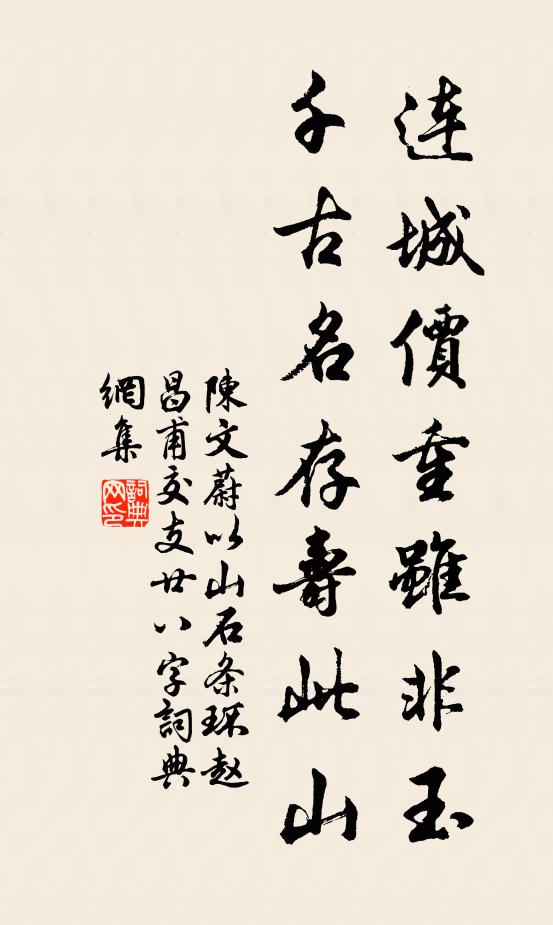 連城價重雖非玉
千古名存壽此山
陳文蔚以山石条琛赵
昌甫交支廿八字詞典
網集
詞典網印